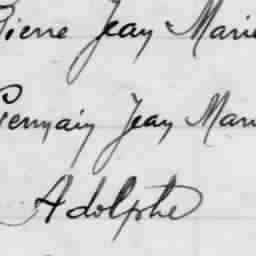 Pierre Jean Marie
Germain Jean Marie
Adolphe